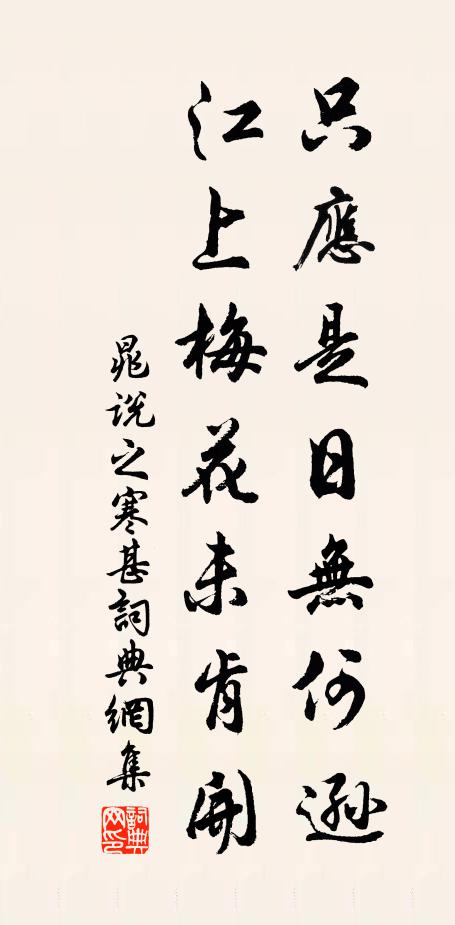 只應是日無何遜
江上梅花未肯開
晁说之寒甚詞典網集
詞典網印